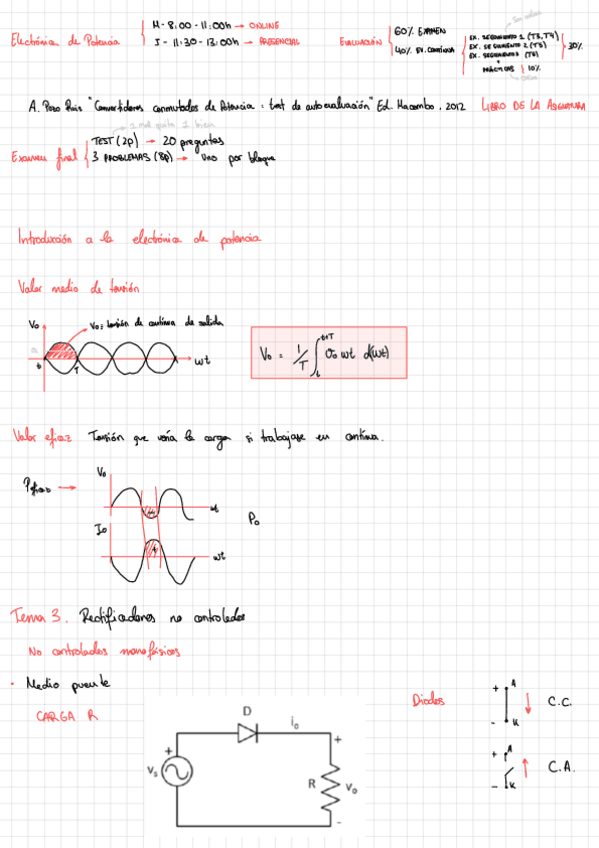 Electrónica de Potencia
M - 8:00 - 11:00h → ONLINE
J - 11:30 - 13:00h → PRESENCIAL
EVALUACIÓN
60% EXAMEN
40% EV. CONTINUA
EX. SEGUIMIENTO 1 (T3,T4)
EX. SEGUIMIENTO 2 (T5)
EX. SEGUIMIENTO 3 (T6)
30%
PRÁCTICAS 10%
A. Pozo Ruiz "Convertidores conmutados de Potencia: test de autoevaluación" Ed. Marcombo, 2012 LIBRO DE LA ASIGNATURA
1 mal quita 1 bien
Examen final
TEST (2p) → 20 preguntas
3 PROBLEMAS (8p) → Uno por bloque
Introducción a la electrónica de potencia
Valor medio de tensión
Vo
Vo = tensión de continua de salida
t
T
wt
Vo = 1/T ∫ t t+T vo wt d(wt)
Valor eficaz Tensión que vería la carga si trabajase en continua.
Vo
wt
Po
Io
wt
Tema 3. Rectificadores no controlados
No controlados monofásicos
- Medio puente
CARGA R
D
io
+
Vs
R
Vo
-
Diodos
+ A
- K
C.C.
+ A
- K
C.A.